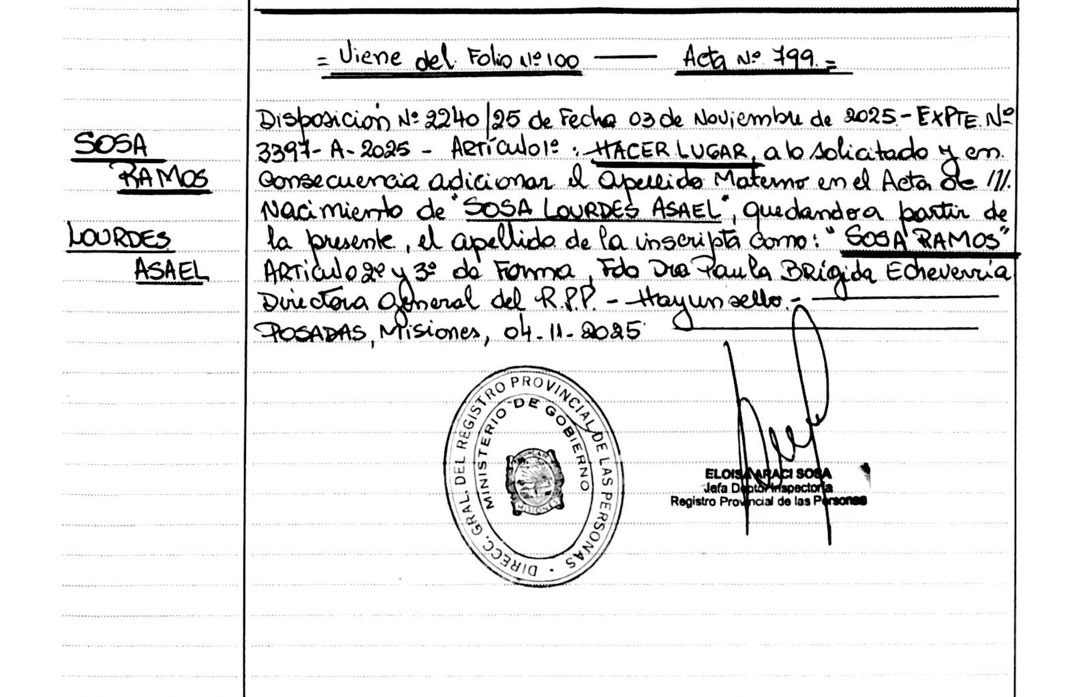 = Viene del Folio Nº 100 — Acta Nº 799.=
SOSA
RAMOS
LOURDES
ASAEL
Disposición Nº 2240/25 de Fecha 03 de Noviembre de 2025 - EXPTE. Nº
3397-A-2025 - Artículo 1º : HACER LUGAR, a lo solicitado y en
consecuencia adicionar el apellido Materno en el Acta de
Nacimiento de "SOSA LOURDES ASAEL", quedando a partir de
la presente, el apellido de la inscripta como: "SOSA RAMOS"
Artículo 2º y 3º de Forma, Fdo Dra Paula Brígida Echeverría
Directora General del R.P.P. - Hay un sello.-
POSADAS, Misiones, 04-11-2025
DIRECC. GRAL. DEL REGISTRO PROVINCIAL DE LAS PERSONAS -
MINISTERIO DE GOBIERNO
MISIONES
ELOISA ARACI SOSA
Jefa Depto. Inspectoría
Registro Provincial de las Personas